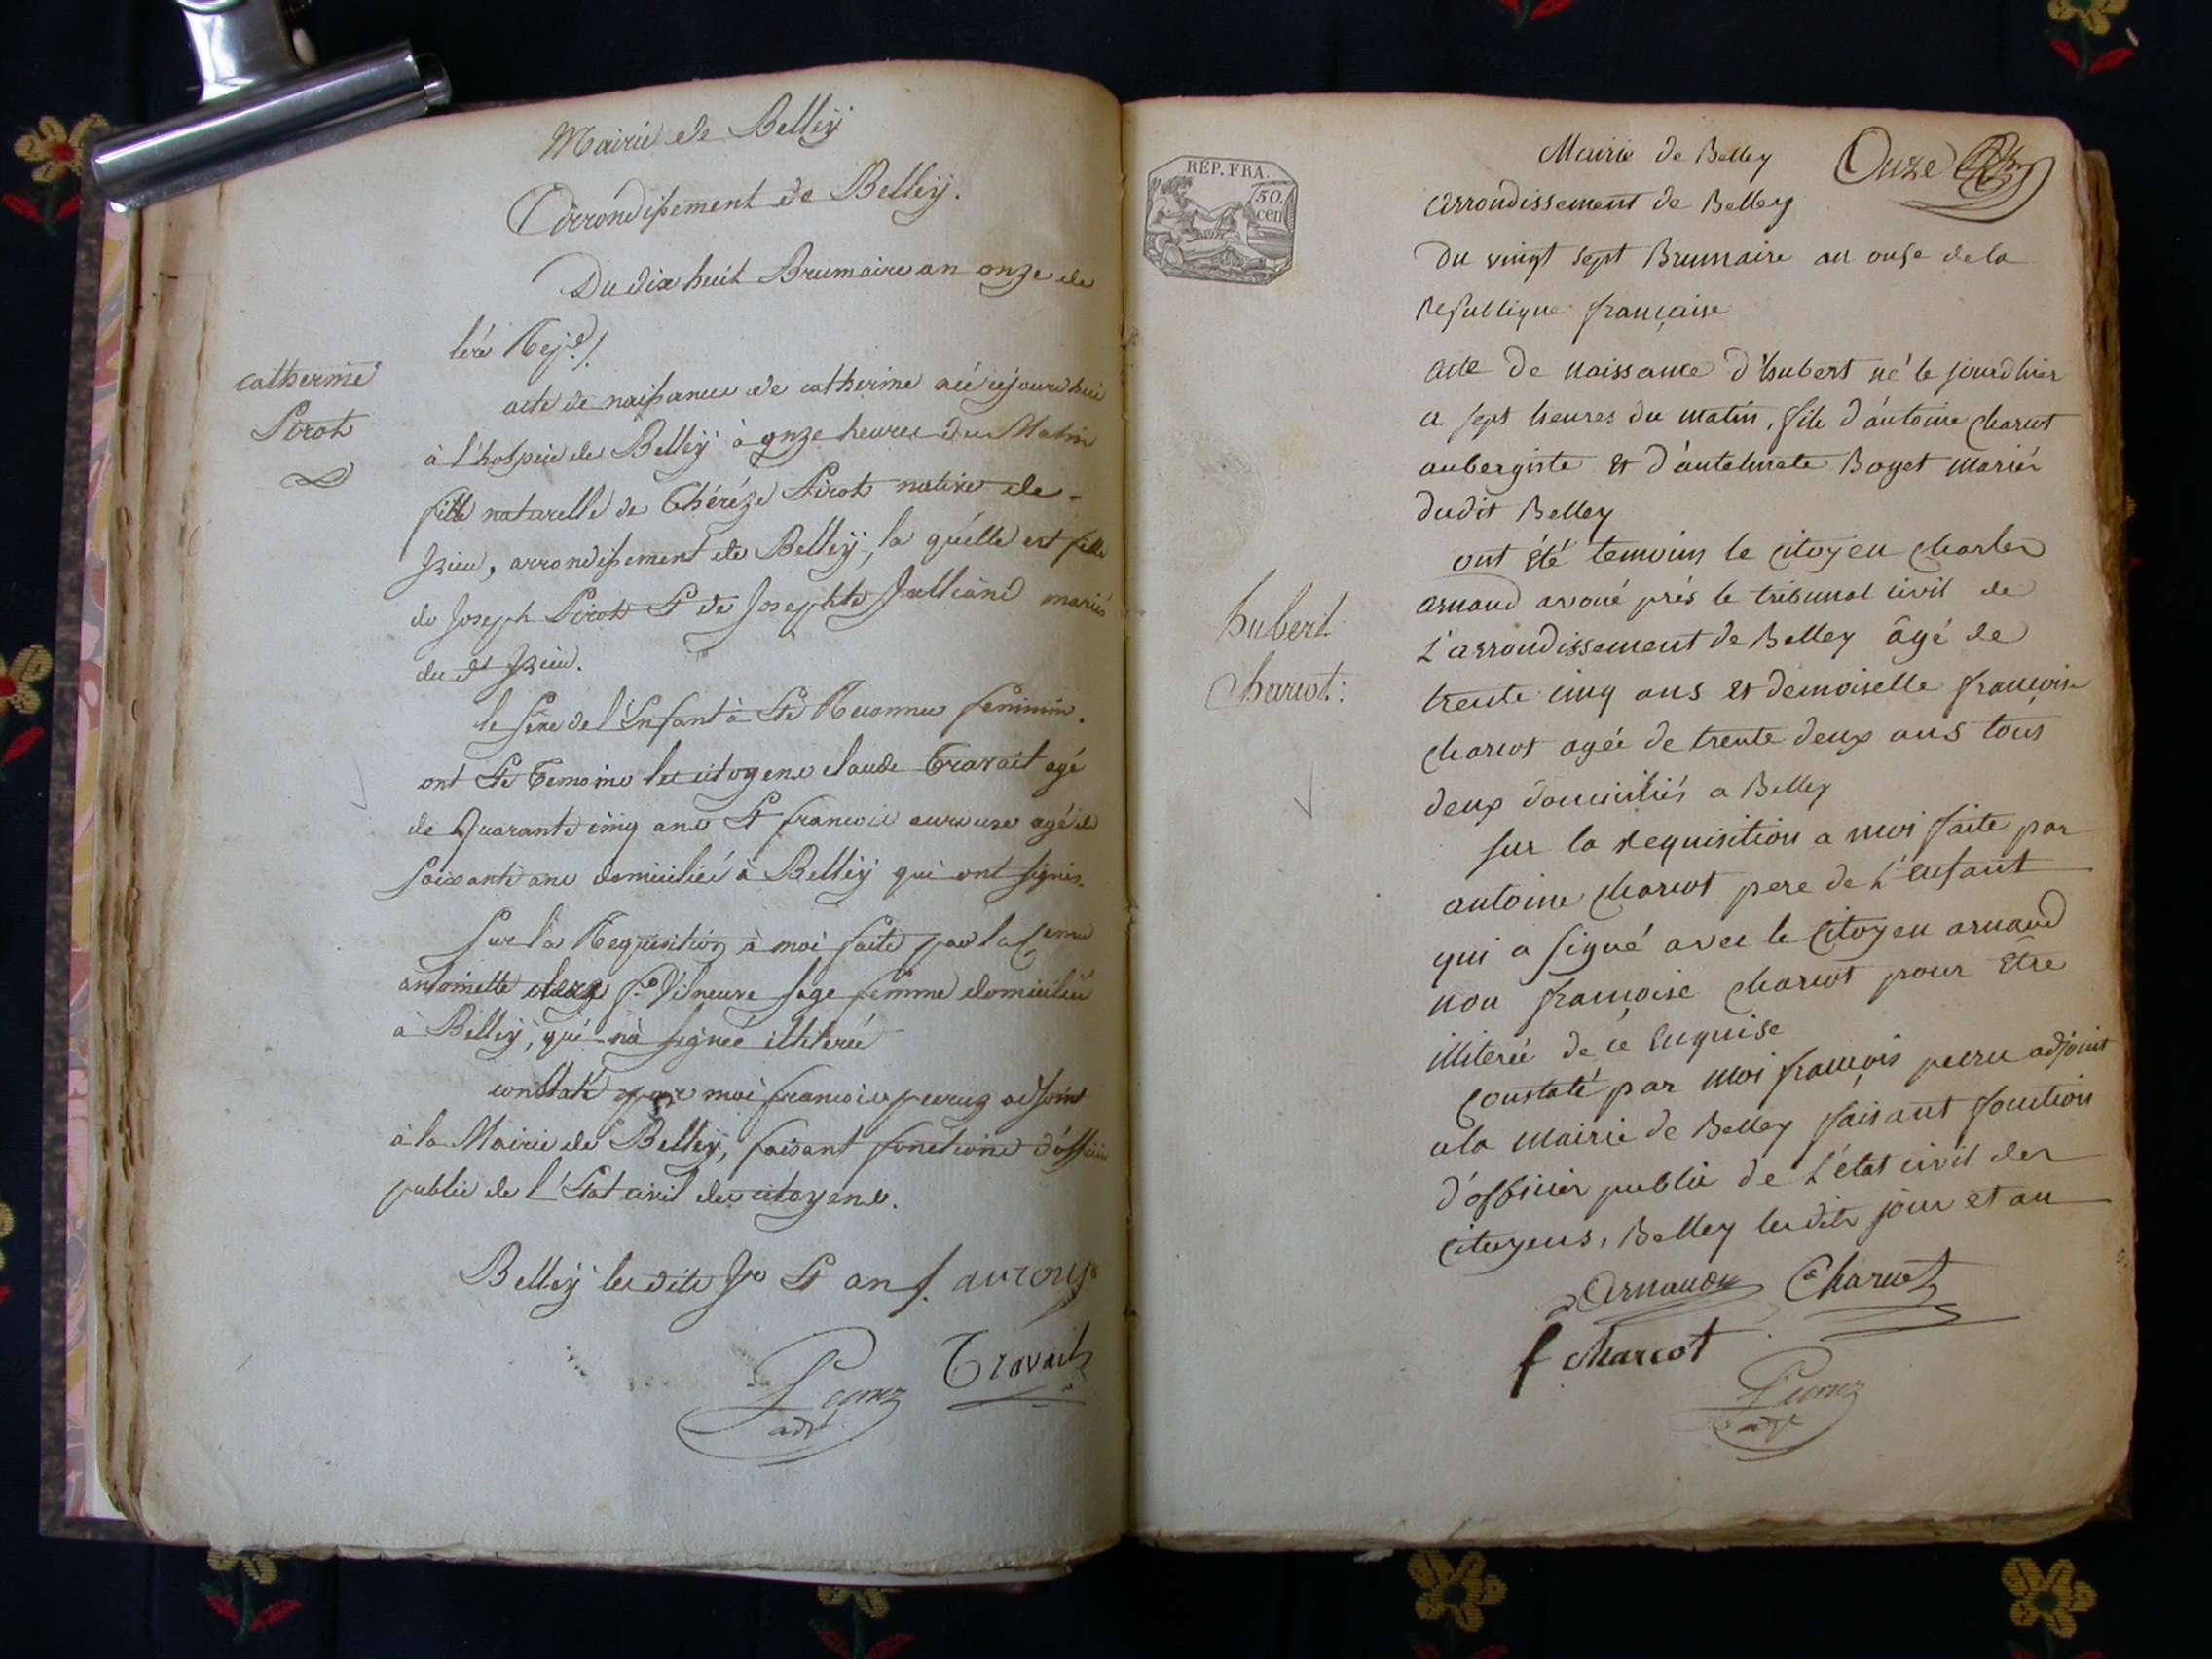 Mairie de Belleÿ
Arrondissement de Belleÿ.
Du dix huit Brumaire an onze de
l'éré
catherine
Pirot
acte de naissance de catherine née cejourd'hui
à l'hospice de Belleÿ à onze heures du Matin
fille naturelle de Thérèze Pirot native de
Izieu, arrondissement de Belleÿ, la quélle est fille
de Joseph Pirot Et de Josephte Julliand mariés
du dt Izieu.
le sexe de l'Enfant à Eté Reconnu feminin.
ont Eté Temoins les citoyens claude Travait agé
de Quarante cinq ans Et francois auruse agé de
soixante ans domiciliés à Belleÿ qui ont signés.
Sur la Requisition à moi faite par la
antoinette sage femme domiciliée
à Belleÿ, qui n'à signée illiterée
constaté par moi francois peeruz adjoint
à la Mairie de Belleÿ, faisant fonctions d'officier
public de l'Etat civil des citoyens.
Belleÿ les dits Jr Et an f.
Travait
adjt
REP. FRA.
50.
cen
Mairie de Belley
Onze
arrondissement de Belley
Du vingt sept Brumaire an onse de la
Republique française
acte De naissance d'hubert né le jourdhier
a sept heures du matin, fils d'antoine charcot
aubergiste et d'antelmete Boyet mariés
dudit Belley
hubert
Charcot:
ont été temoins le citoyen charles
arnaud avoué prés le tribunal civil de
L'arrondissement de Belley âgé de
trente cinq ans et demoiselle francoise
charcot agée de trente deux ans tous
deux domiciliés a Belley
sur la requisition a moi faite par
antoine charcot pere de L'enfant
qui a signé avec le citoyen arnaud
non françoise charcot pour être
illiterée de ce enquise
Constaté par moi françois peeru adjoint
a la mairie de Belley faisant fonction
d'officier public de L'état civil des
citoyens, Belley les dits jour et an
Arnaud Charcot
f Charcot
adjt